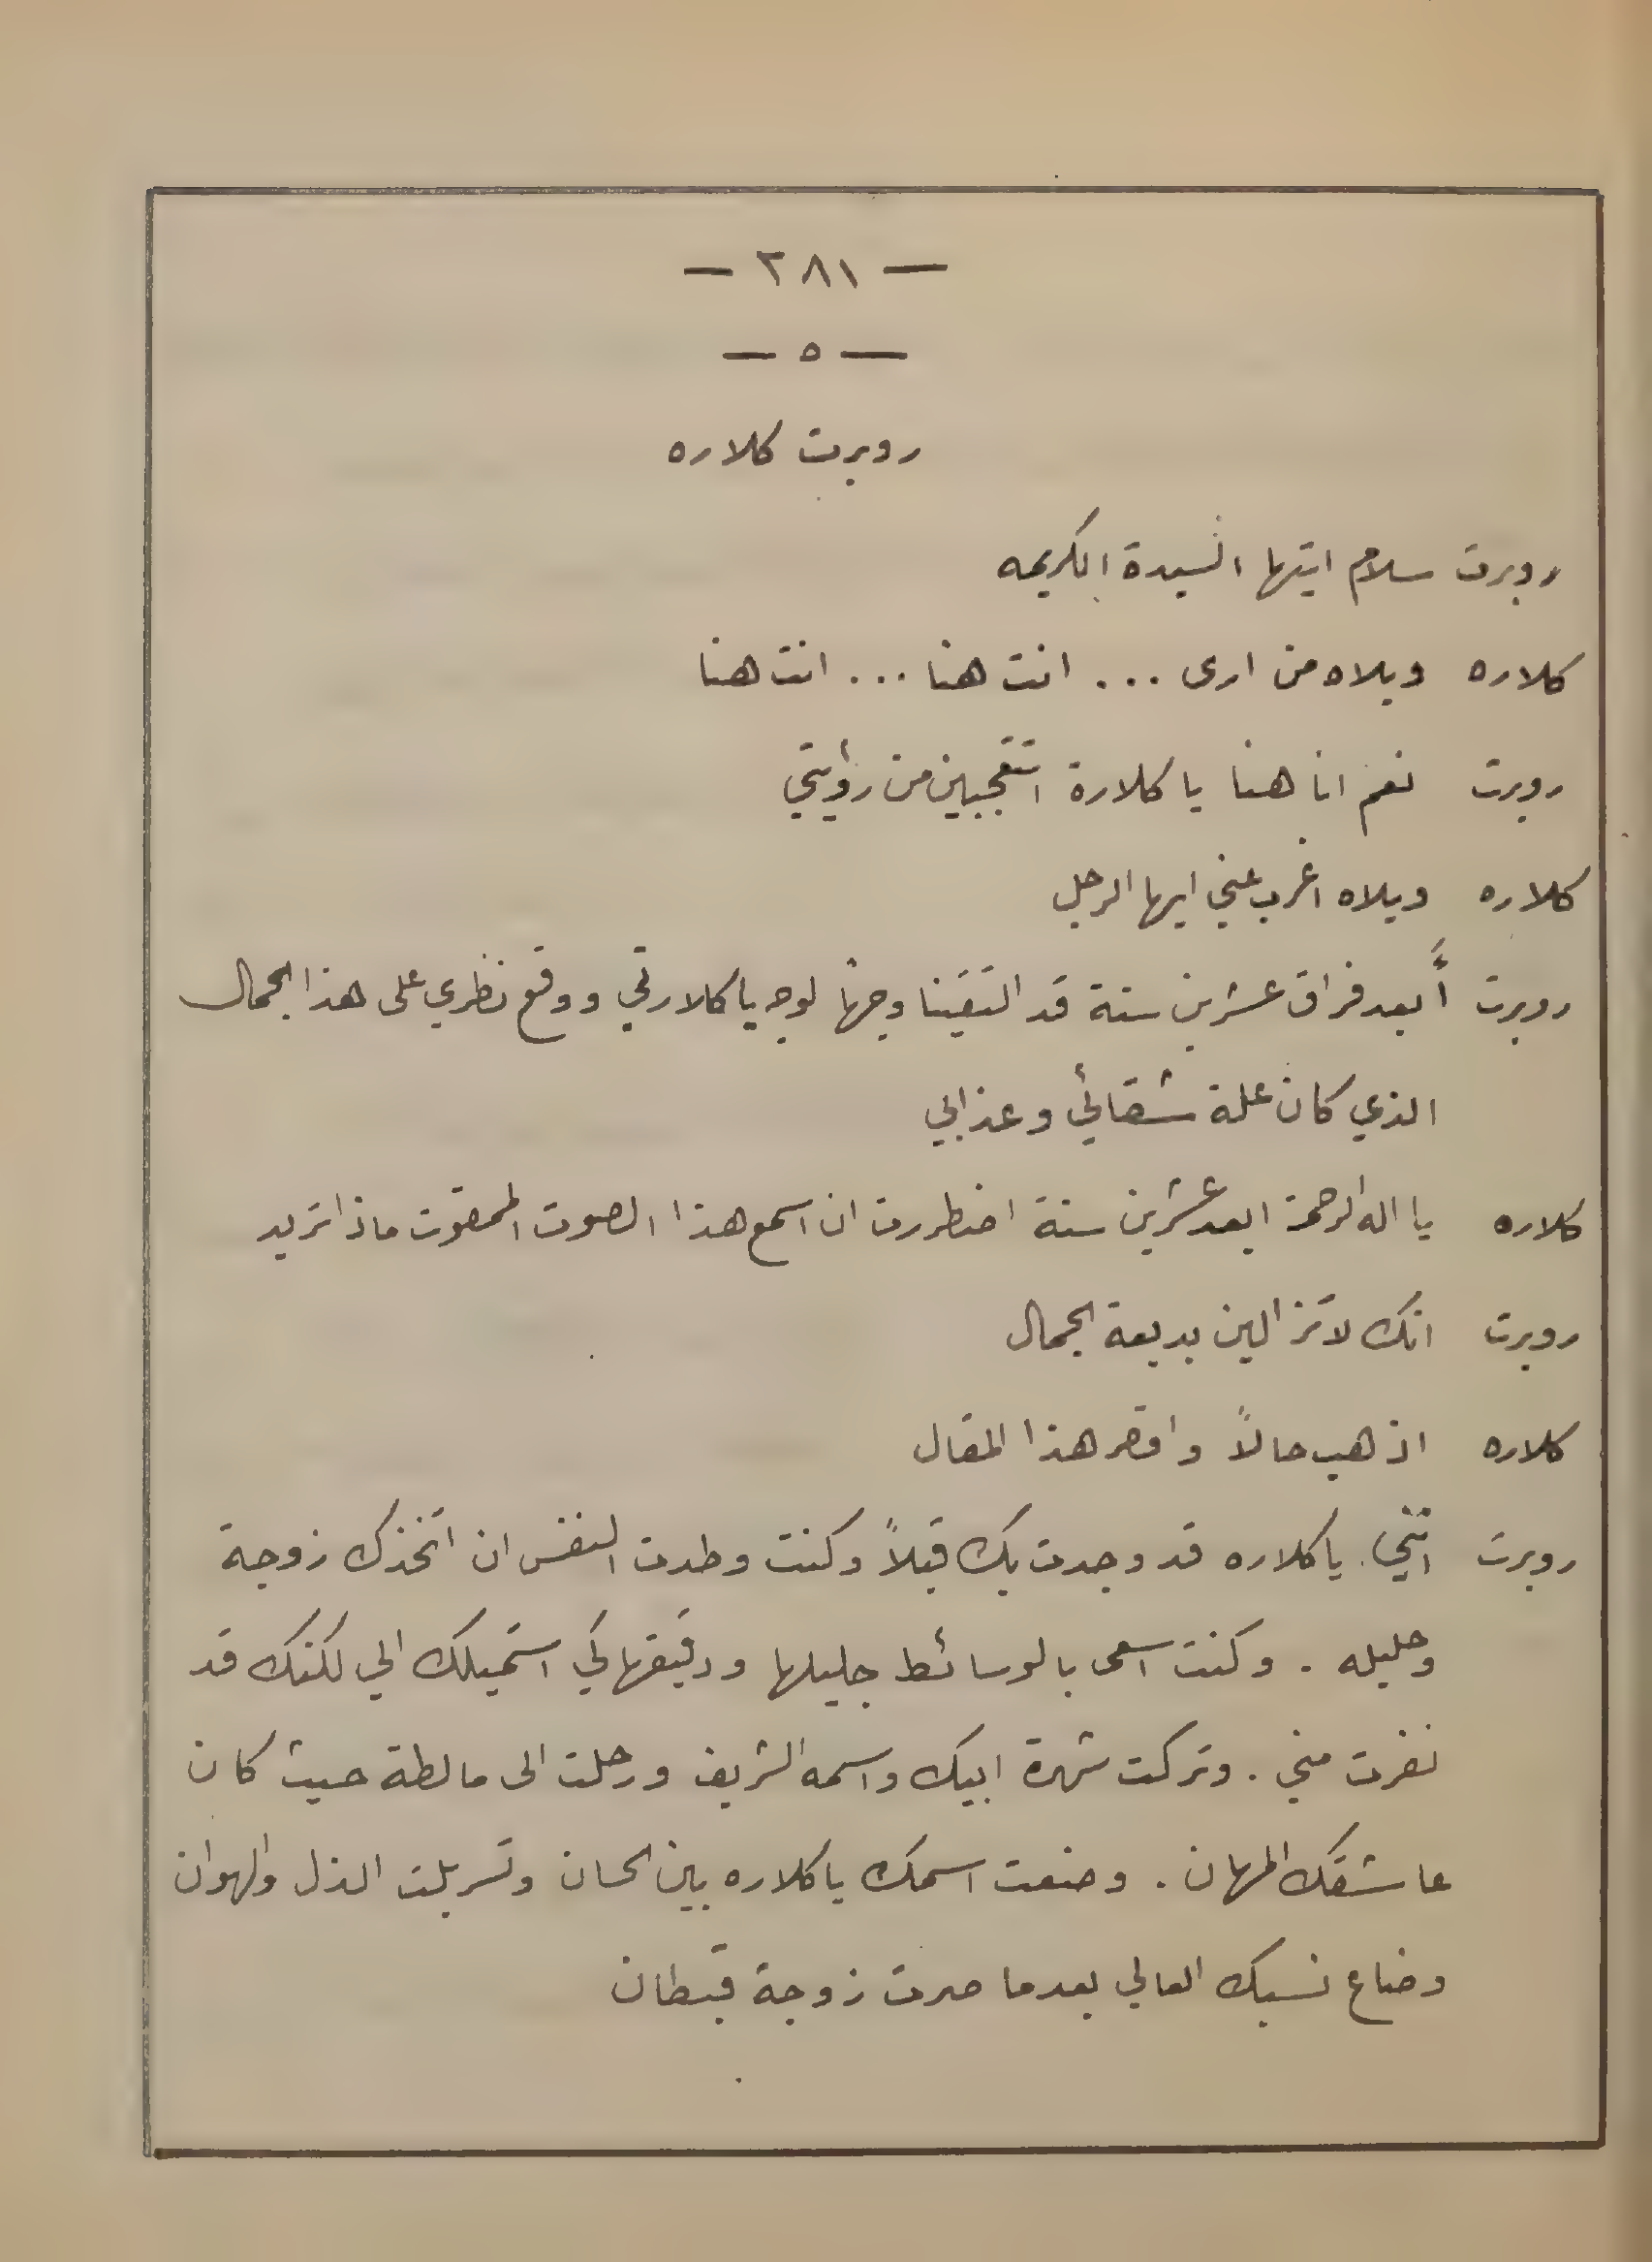 — ٢٨١ —
— ٥ —
روبرت كلاره
روبرت سلام ايتها السيدة الكريمه
كلاره ويلاه من ارى ... انت هنا ... انت هنا
روبرت نعم انا هنا يا كلارة اتتعجبين من رؤيتي
كلاره ويلاه اغرب عني ايها الرجل
روبرت أبعد فراق عشرين سنة قد التقينا وجهاً لوجه يا كلارتي ووقع نظري على هذا الجمال
الذي كان علة شقائي وعذابي
كلاره يا اله الرحمة ابعد عشرين سنة اضطررت ان اسمع هذا الصوت الممقوت ماذا تريد
روبرت انك لا تزالين بديعة الجمال
كلاره اذهب حالاً واقصر هذا المقال
روبرت انني يا كلاره قد وجدت بك قبلاً وكنت وطدت النفس ان اتخذك زوجة
وحليله . وكنت اسعى بالوسائط جليلها ودقيقها كي استميلك الي لكنك قد
نفرت مني . وتركت شهرة ابيك واسمه الشريف ورحلت الى مالطة حيث كان
عاشقك المهان . وضعت اسمك يا كلاره بين الحان وتسربلت الذل والهوان
وضاع نسبك العالي بعدما صرت زوجة قبطان